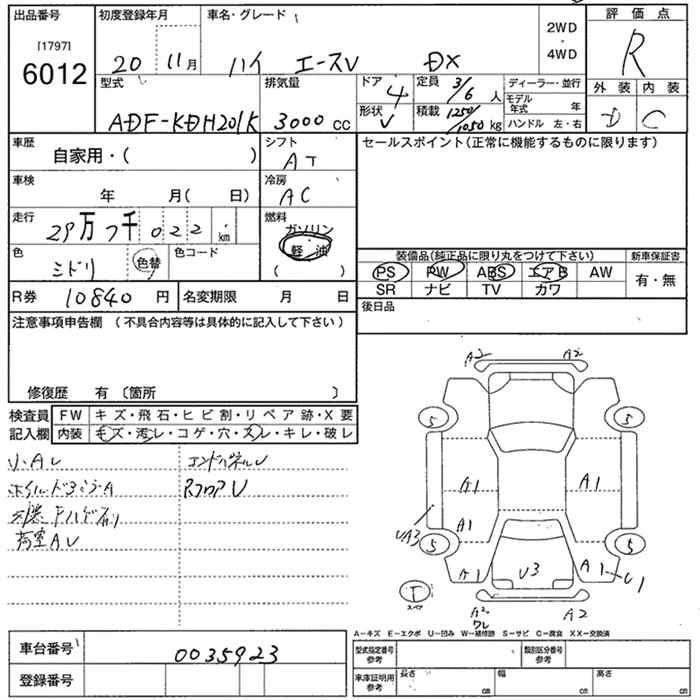 出品番号
[1797]
6012
初度登録年月
20 11月
車名・グレード
ハイエースV DX
2WD
・
4WD
評価点
R
外装 内装
D C
型式
ADF-KDH201K
排気量
3000 cc
ドア
4
形状
V
定員 3/6 人
積載 1250/1050 kg
ディーラー・並行
モデル年式 年
ハンドル 左・右
車歴
自家用・( )
シフト
AT
セールスポイント(正常に機能するものに限ります)
車検
年 月( 日)
冷房
AC
走行
29万7千022 km
燃料
ガソリン
軽・油
( )
色
ミドリ
色替
色コード
装備品(純正品に限り丸をつけて下さい)
新車保証書
PS PW ABS エアB AW
SR ナビ TV カワ
有・無
R券 10840 円
名変期限 月 日
後日品
注意事項申告欄 (不具合内容等は具体的に記入して下さい)
修復歴 有 〔箇所 〕
検査員
記入欄
FW キズ・飛石・ヒビ割・リペア跡・X要
内装 キズ・汚レ・コゲ・穴・スレ・キレ・破レ
エンドパネルU
RフロアU
荷室AU
A2 A2
5 5
A1 A1
A1
UA3
5 5
A1 U3 A1 U1
T
スペア
A2 A2
ワレ
A−キズ E−エクボ U−凹み W−補修跡 S−サビ C−腐食 XX−交換済
車台番号
0035923
登録番号
型式指定番号
参考
類別区分番号
参考
車庫証明用
参考
長さ cm
幅 cm
高さ cm